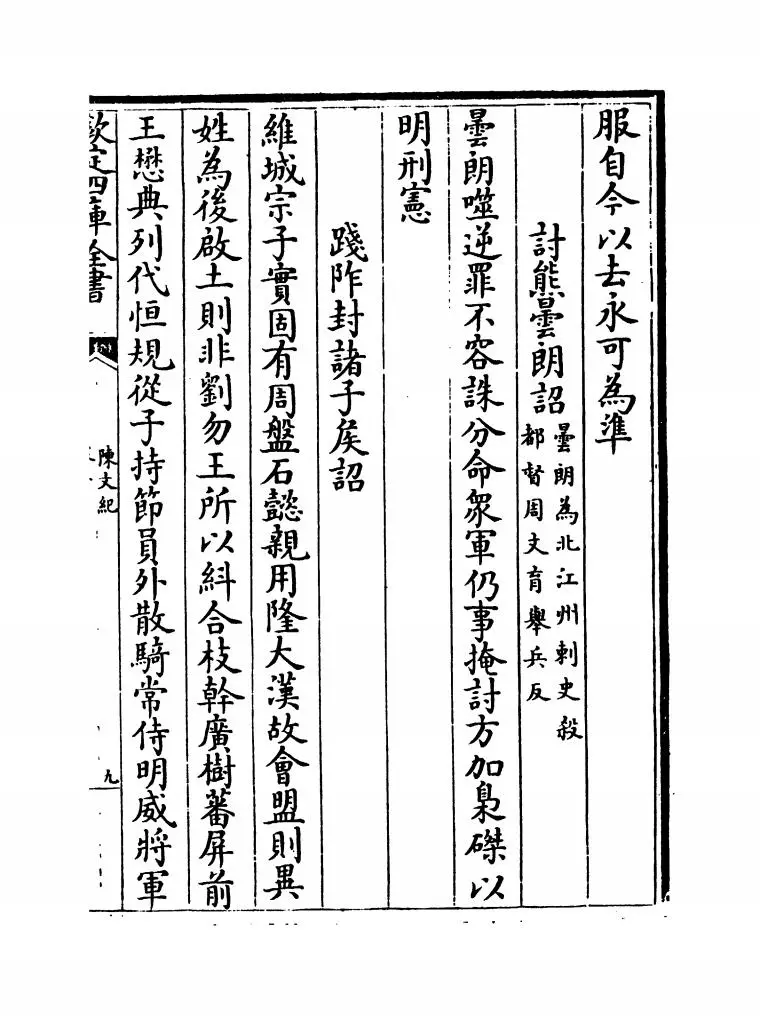 服自今以去永可為準
討熊曇朗詔曇朗為北江州刺史殺
都督周文育舉兵反
曇朗噬逆罪不容誅分命衆軍仍事掩討方加梟磔以
明刑憲
踐阼封諸子矦詔
維城宗子實固有周盤石懿親用隆大漢故會盟則異
姓為後啟土則非劉勿王所以糾合枝幹廣樹蕃屏前
王懋典列代恒規從子持節員外散騎常侍明威將軍
欽定四庫全書
陳文紀
九